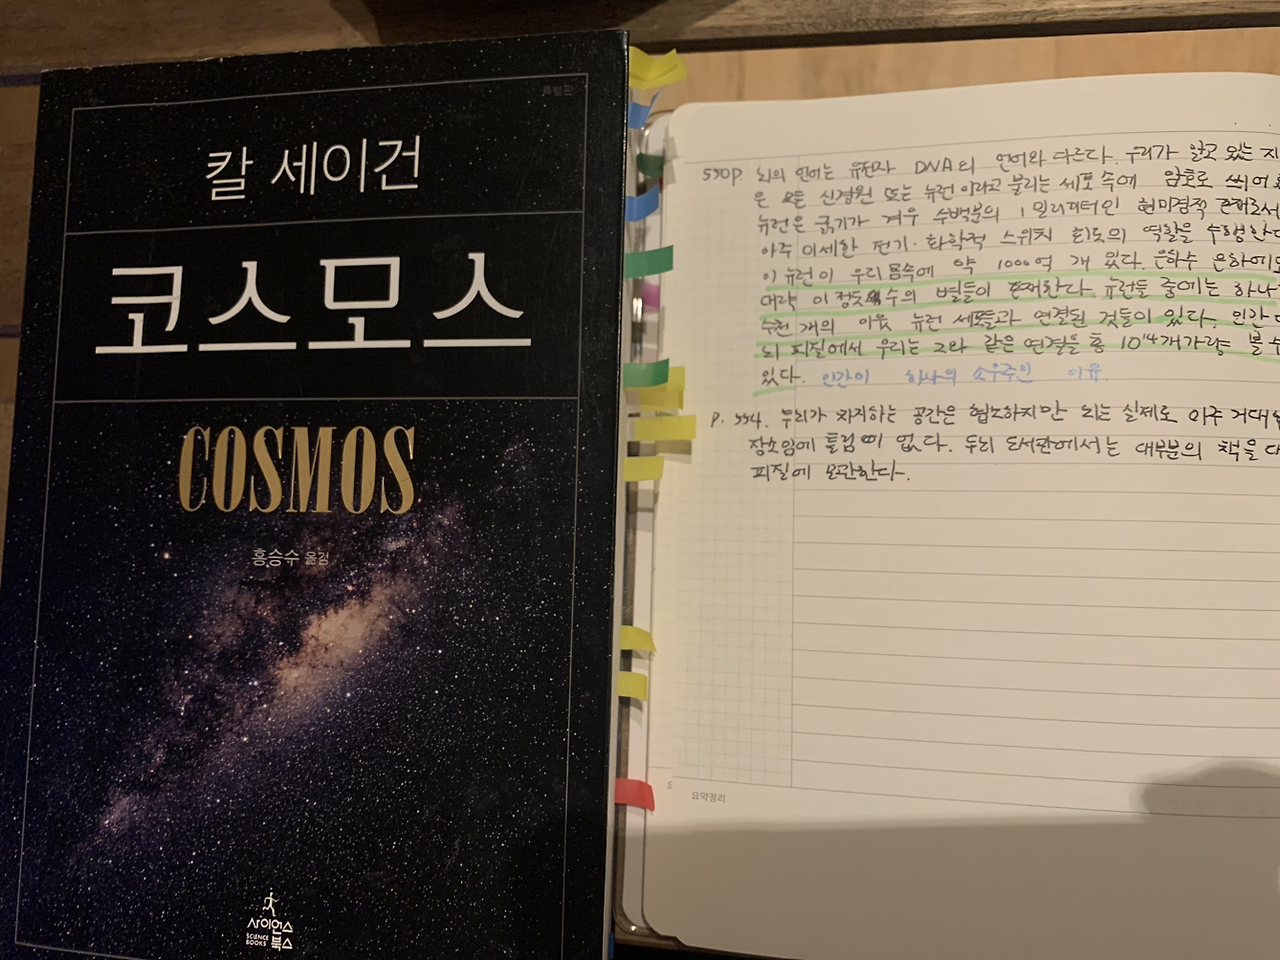 특별판
칼 세이건
코스모스
COSMOS
홍승수 옮김
사이언스
SCIENCE BOOKS
북스
550p. 뇌의 언어는 유전자 DNA의 언어와 다르다. 우리가 알고 있는 지
은 모두 신경원 또는 뉴런이라고 불리는 세포 속에 암호로 씌어
뉴런은 굵기가 겨우 수백분의 1 밀리미터인 현미경적 존재로서
아주 미세한 전기·화학적 스위치 회로의 역할을 수행한다
이 뉴런이 우리 몸속에 약 1000억 개 있다. 은하수 은하에도
대략 이 정도 수의 별들이 존재한다. 뉴런들 중에는 하나
수천 개의 이웃 뉴런 세포들과 연결된 것들이 있다. 인간
뇌 피질에서 우리는 그와 같은 연결을 총 10¹⁴개가량 볼 수
있다. 인간이 하나의 소우주인 이유
P. 554. 우리가 차지하는 공간은 협소하지만 뇌는 실제로 아주 거대한
장소임에 틀림이 없다. 우리 도서관에서는 대부분의 책을 대
피질에 보관한다.
요약정리